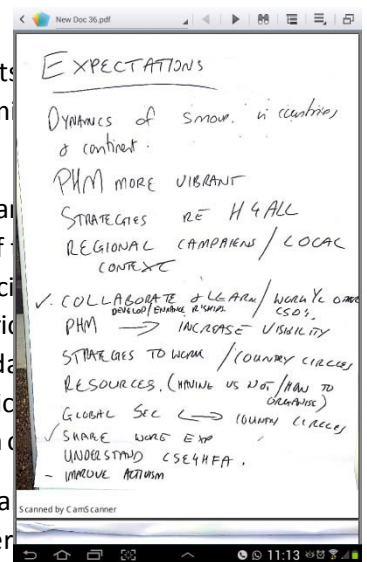 New Doc 36.pdf
EXPECTATIONS
DYNAMICS of in countries
& continent.
PHM MORE VIBRANT
STRATEGIES RE H4ALL
REGIONAL CAMPAIGNS / LOCAL
CONTEXT
✓. COLLABORATE & LEARN / WORK OTHER
DEVELOP/ENHANCE R'SHIPS CSO's.
PHM → INCREASE VISIBILITY
STRATEGIES TO WORK / COUNTRY CIRCLES
RESOURCES. (HAVING VS NOT / HOW TO
ORGANISE)
GLOBAL SEC ↔ COUNTRY CIRCLES
✓ SHARE WORK EXP
UNDERSTAND CSE4HFA.
- IMPROVE ACTIVISM
Scanned by CamScanner
11:13